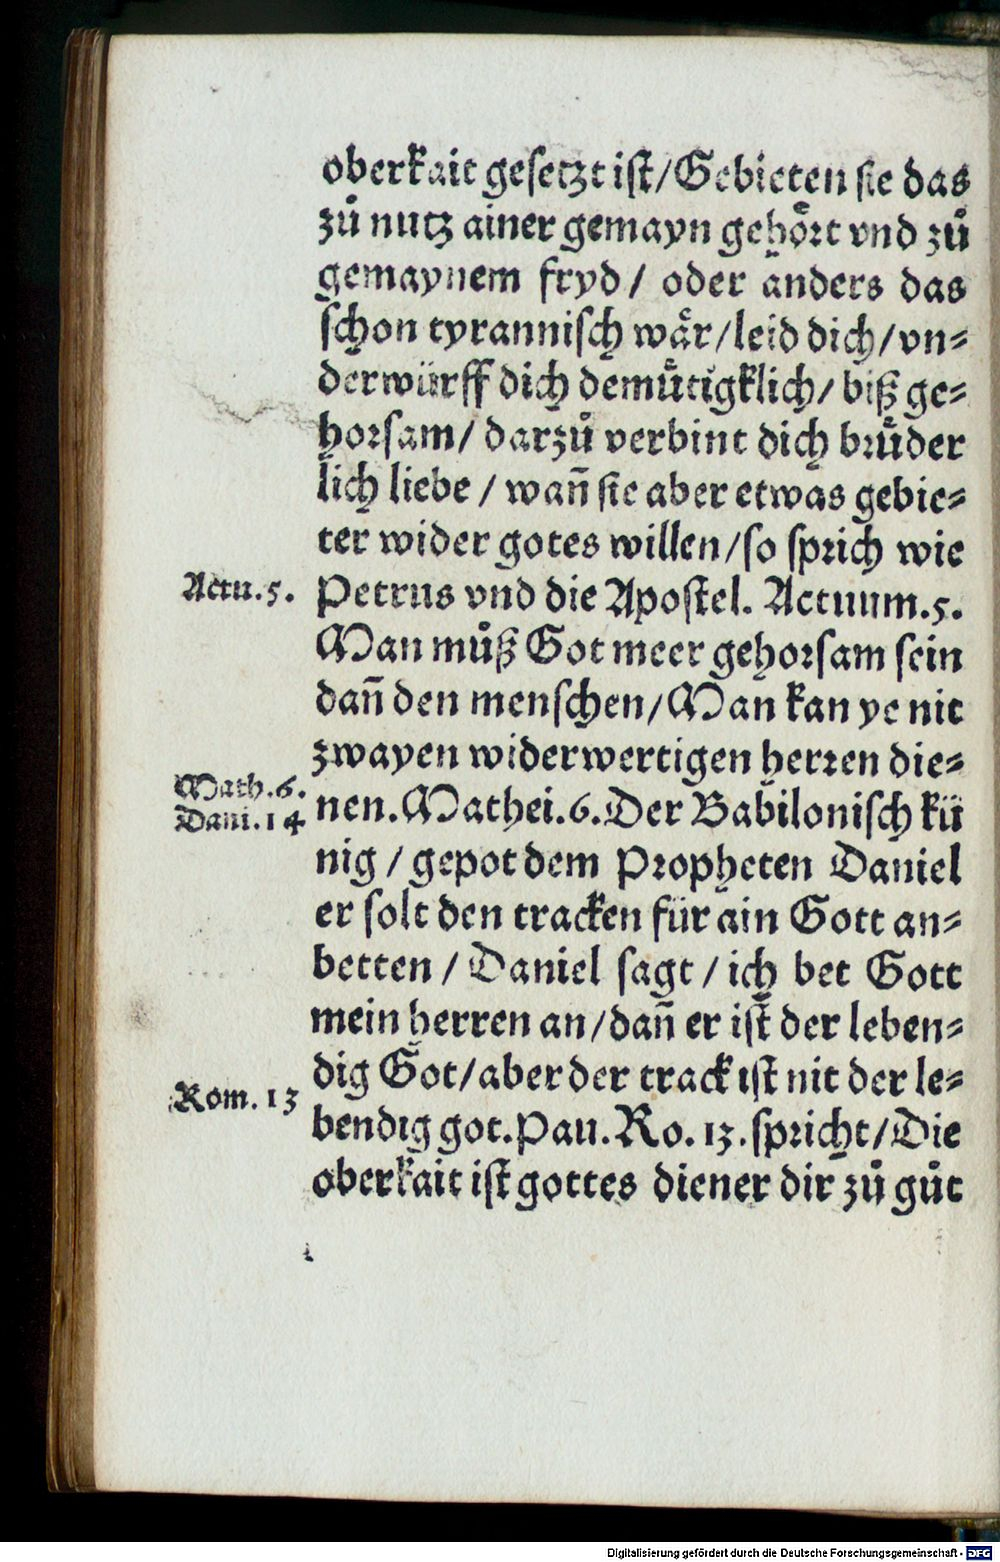 oberkait gesetzt ist/Gebieten sie das
zů nutz ainer gemayn gehoͤrt vnd zů
gemaynem fryd/ oder anders das
schon tyrannisch waͤr/leid dich/vn-
derwürff dich demuͤtigklich/ biß ge-
horsam/ darzů verbint dich bruͤder
lich liebe / wañ sie aber etwas gebie-
ter wider gotes willen/so sprich wie
Actu.5.
Petrus vnd die Apostel. Actuum.5.
Man můß Got meer gehorsam sein
dañ den menschen/Man kan ye nit
zwayen widerwertigen herren die-
Math.6.
Dani.14
nen.Mathei.6.Der Babilonisch kü
nig / gepot dem Propheten Daniel
er solt den tracken für ain Gott an-
betten / Daniel sagt / ich bet Gott
mein herren an/dañ er ist der leben-
dig Got/aber der track ist nit der le-
Rom. 13
bendig got.Pau.Ro. 13.spricht/Die
oberkait ist gottes diener dir zů gůt
Digitalisierung gefördert durch die Deutsche Forschungsgemeinschaft - DFG